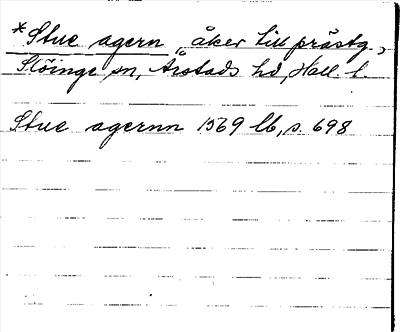 *Stue agern „åker till prästg.,
Slöinge sn, Årstads hd, Hall. l.
Stue agernn 1569 lb, s. 698